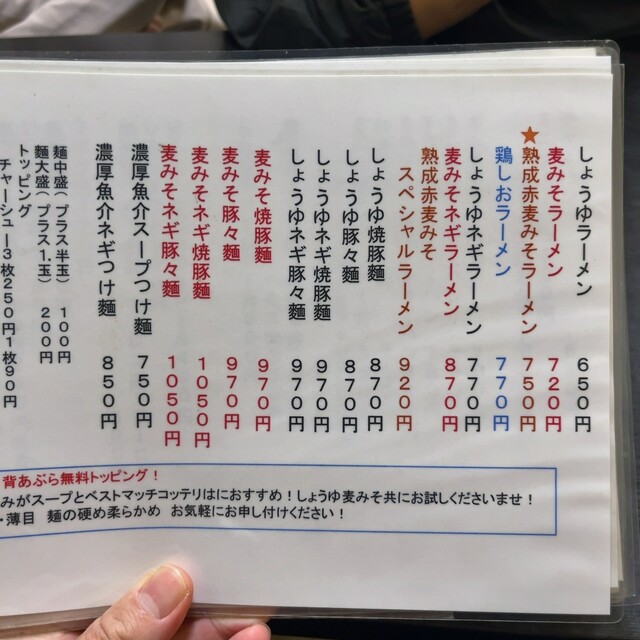 しょうゆラーメン 650円
麦みそラーメン 720円
★熟成赤麦みそラーメン 750円
鶏しおラーメン 770円
しょうゆネギラーメン 770円
麦みそネギラーメン 870円
熟成赤麦みそ
スペシャルラーメン 920円
しょうゆ焼豚麺 870円
しょうゆ豚々麺 870円
しょうゆネギ焼豚麺 970円
しょうゆネギ豚々麺 970円
麦みそ焼豚麺 970円
麦みそ豚々麺 970円
麦みそネギ焼豚麺 1050円
麦みそネギ豚々麺 1050円
濃厚魚介スープつけ麺 750円
濃厚魚介ネギつけ麺 850円
麺中盛(プラス半玉) 100円
麺大盛(プラス1.玉) 200円
トッピング
チャーシュー3枚250円1枚90円
背あぶら無料トッピング!
みがスープとベストマッチコッテリはにおすすめ!しょうゆ麦みそ共にお試しくださいませ!
・薄目 麺の硬め柔らかめ お気軽にお申し付けください!